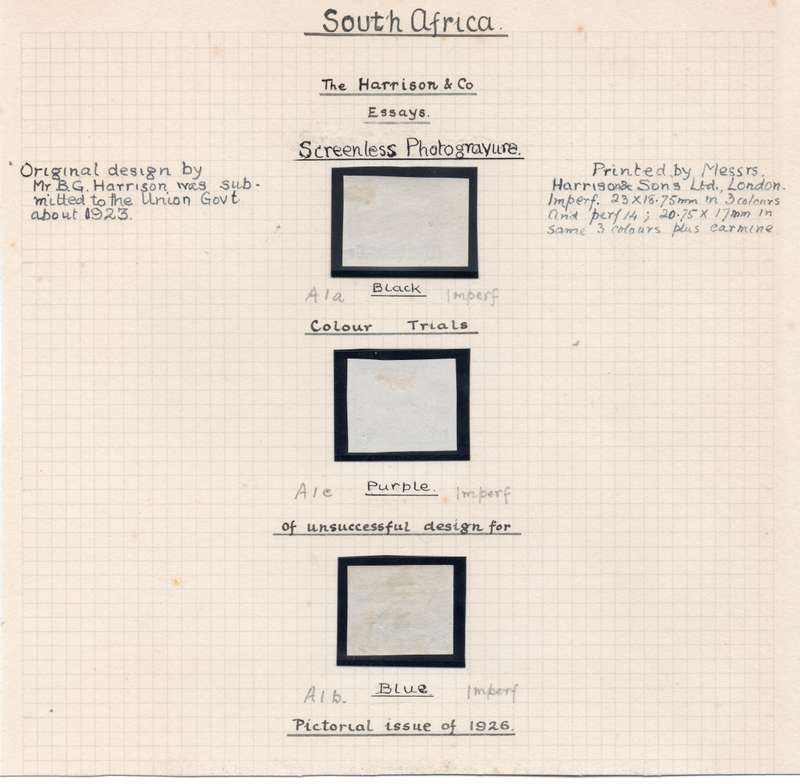 South Africa.
The Harrison & Co
Essays.
Screenless Photogravure.
Original design by
Mr B.G. Harrison was sub-
mitted to the Union Govt
about 1923.
Printed by Messrs.
Harrison & Sons Ltd., London.
Imperf. 23 x 18.75mm in 3 colours
and perf 14; 20.75 x 17mm in
same 3 colours plus carmine
A1a Black Imperf
Colour Trials
A1c Purple. Imperf
Of unsuccessful design for
A1b. Blue Imperf
Pictorial issue of 1926.